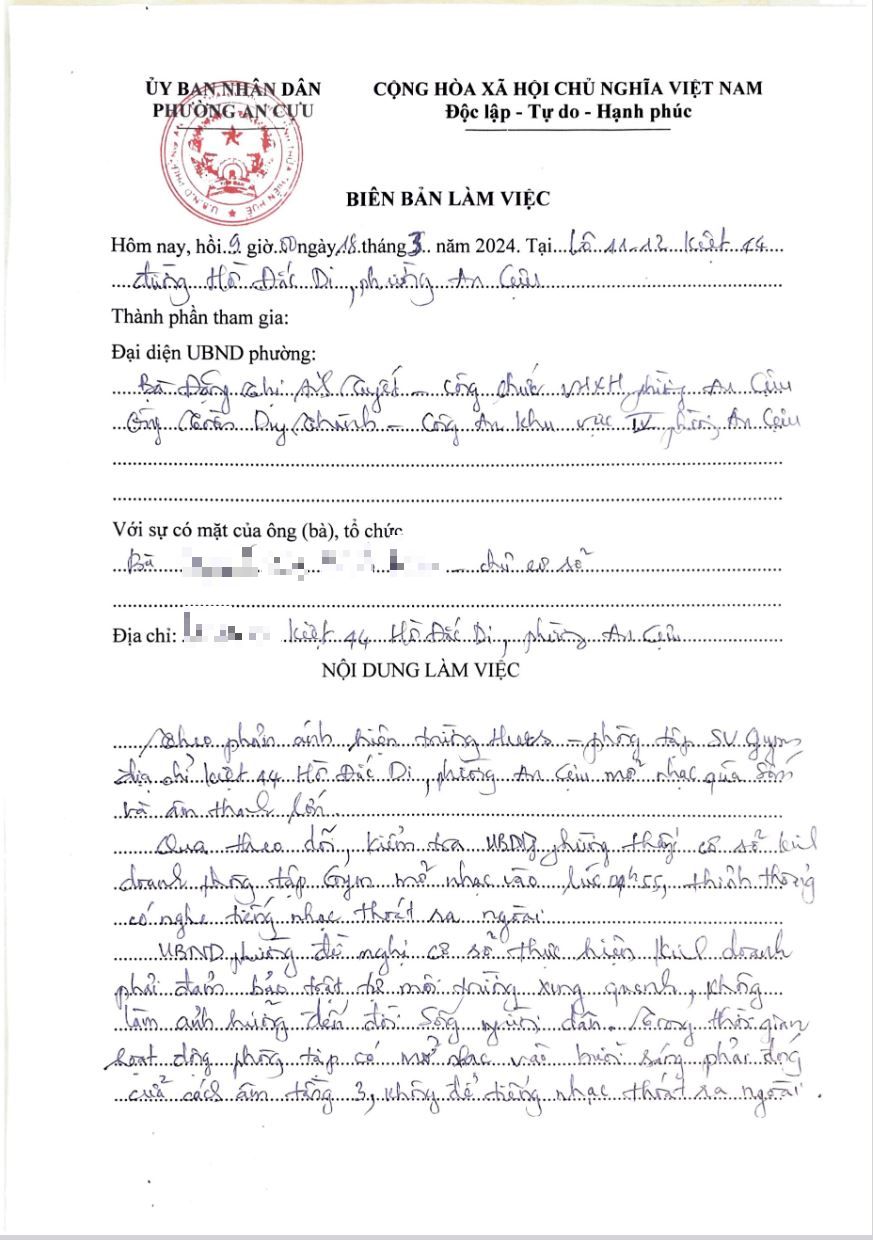 ỦY BAN NHÂN DÂN
PHƯỜNG AN CỰU
CỘNG HÒA XÃ HỘI CHỦ NGHĨA VIỆT NAM
Độc lập - Tự do - Hạnh phúc
BIÊN BẢN LÀM VIỆC
Hôm nay, hồi 9 giờ 00 ngày 18 tháng 3 năm 2024. Tại Lô 11-12 Kiệt 44
đường Hồ Đắc Di, phường An Cựu
Thành phần tham gia:
Đại diện UBND phường:
Bà Đặng Thị Tuyết - Công chức VHXH phường An Cựu
Ông Trần Duy Thành - Công An khu vực IV phường An Cựu
Với sự có mặt của ông (bà), tổ chức
Bà - chủ cơ sở
Địa chỉ: Kiệt 44 Hồ Đắc Di, phường An Cựu
NỘI DUNG LÀM VIỆC
Theo phản ánh hiện trường HueS - phòng tập SV Gym
địa chỉ kiệt 44 Hồ Đắc Di, phường An Cựu mở nhạc quá sớm
và âm thanh lớn.
Qua theo dõi, kiểm tra UBND phường thấy cơ sở kinh
doanh phòng tập Gym mở nhạc vào lúc 55, thỉnh thoảng
có nghe tiếng nhạc thoát ra ngoài
UBND phường đề nghị cơ sở thực hiện kinh doanh
phải đảm bảo trật tự môi trường xung quanh, không
làm ảnh hưởng đến đời sống người dân. Trong thời gian
hoạt động phòng tập có mở nhạc vào buổi sáng phải đóng
cửa cách âm tầng 3, không để tiếng nhạc thoát ra ngoài.